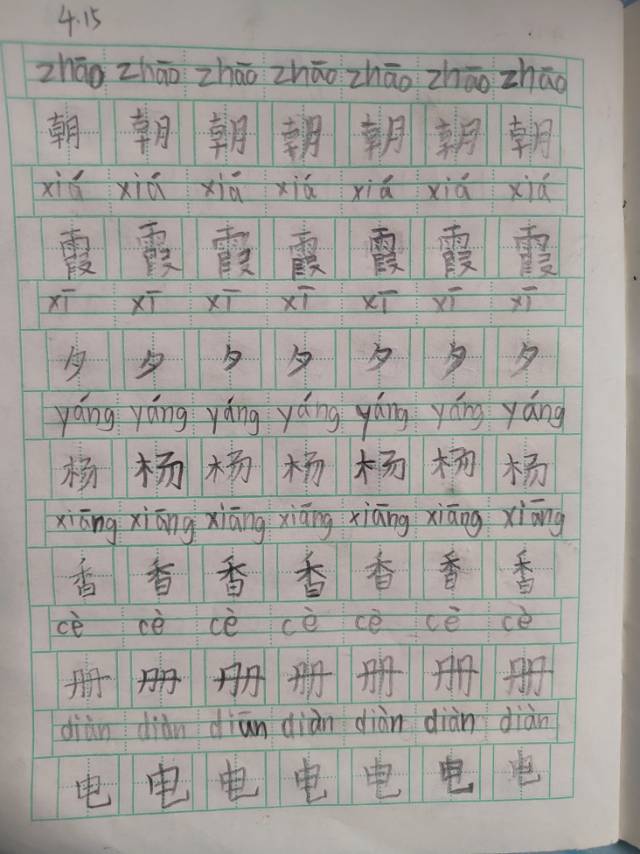 4.15
zhāo zhāo zhāo zhāo zhāo zhāo zhāo
朝 朝 朝 朝 朝 朝 朝
xiá xiá xiá xiá xiá xiá xiá
霞 霞 霞 霞 霞 霞 霞
xī xī xī xī xī xī xī
夕 夕 夕 夕 夕 夕 夕
yáng yáng yáng yáng yáng yáng yáng
杨 杨 杨 杨 杨 杨 杨
xiāng xiāng xiāng xiāng xiāng xiāng xiāng
香 香 香 香 香 香 香
cè cè cè cè cè cè cè
册 册 册 册 册 册 册
diàn diàn diàn diàn diàn diàn diàn
电 电 电 电 电 电 电